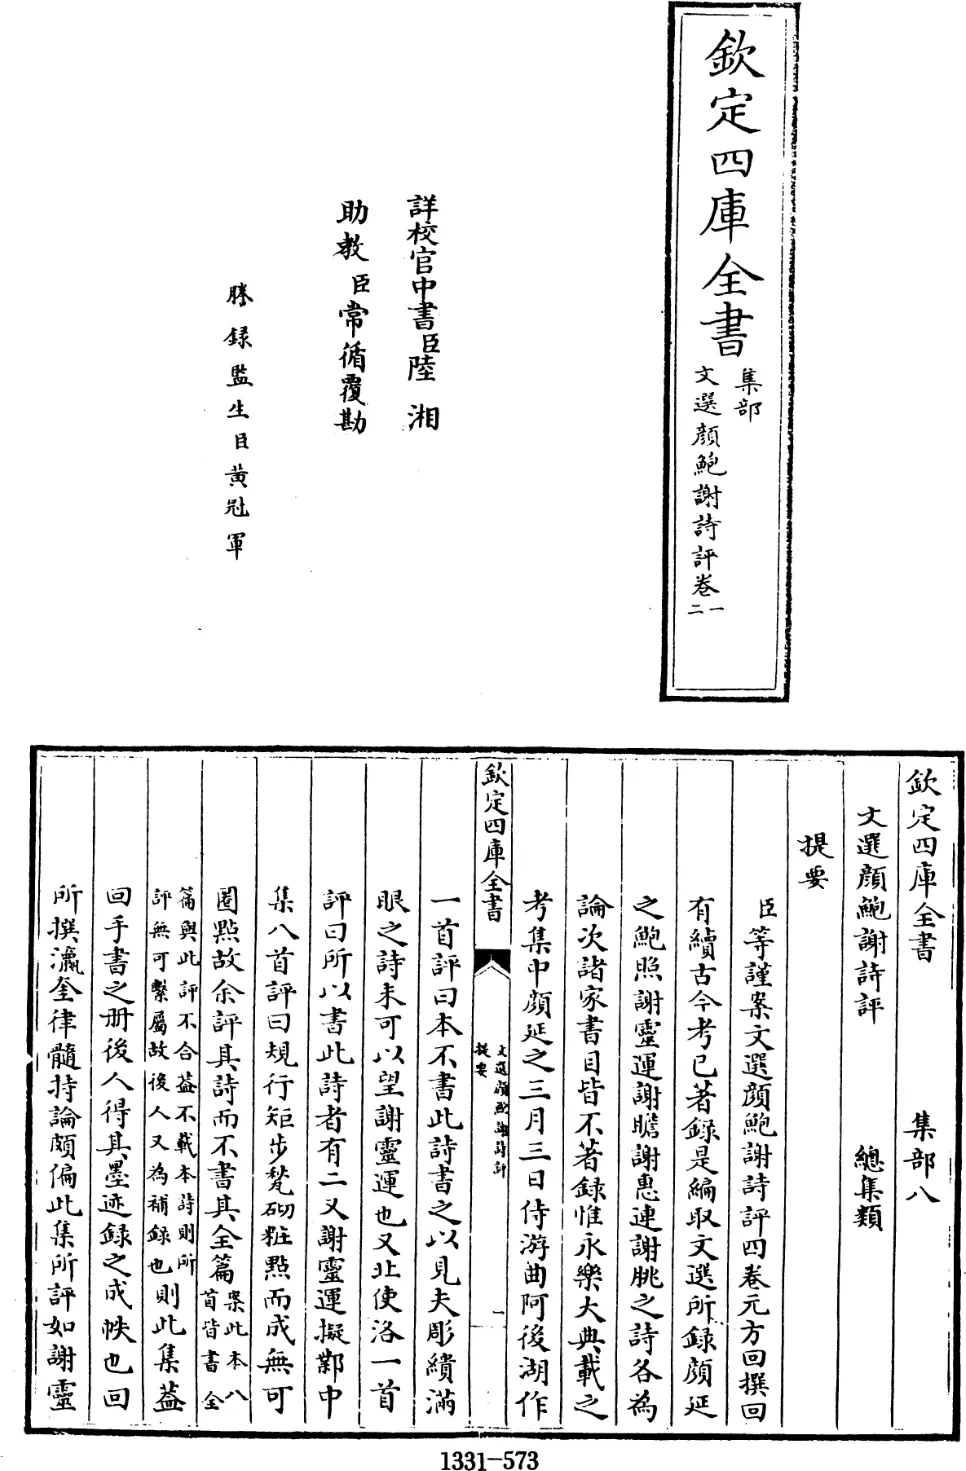 欽定四庫全書
集部
文選顔鮑謝詩評卷一二
詳校官中書臣陸湘
助教臣常循覆勘
謄録監生臣黃冠軍
欽定四庫全書 集部八
文選顔鮑謝詩評 總集類
提要
臣等謹案文選顔鮑謝詩評四卷元方回撰回
有續古今考已著錄是編取文選所錄顔延
之鮑照謝靈運謝瞻謝惠連謝朓之詩各為
論次諸家書目皆不著錄惟永樂大典載之
考集中顔延之三月三日侍游曲阿後湖作
欽定四庫全書
文選顔鮑謝詩評
提要
一
一首評曰本不書此詩書之以見夫彫繢滿
眼之詩未可以望謝靈運也又北使洛一首
評曰所以書此詩者有二又謝靈運擬鄴中
集八首評曰規行矩步甃砌粧點而成無可
圈點故余評其詩而不書其全篇案此本八首皆書全
篇與此評不合葢不載本詩則所評無可繫屬故後人又為補錄也則此集葢
回手書之冊後人得其墨迹錄之成帙也回
所撰瀛奎律髓持論頗偏此集所評如謝靈
1331-573